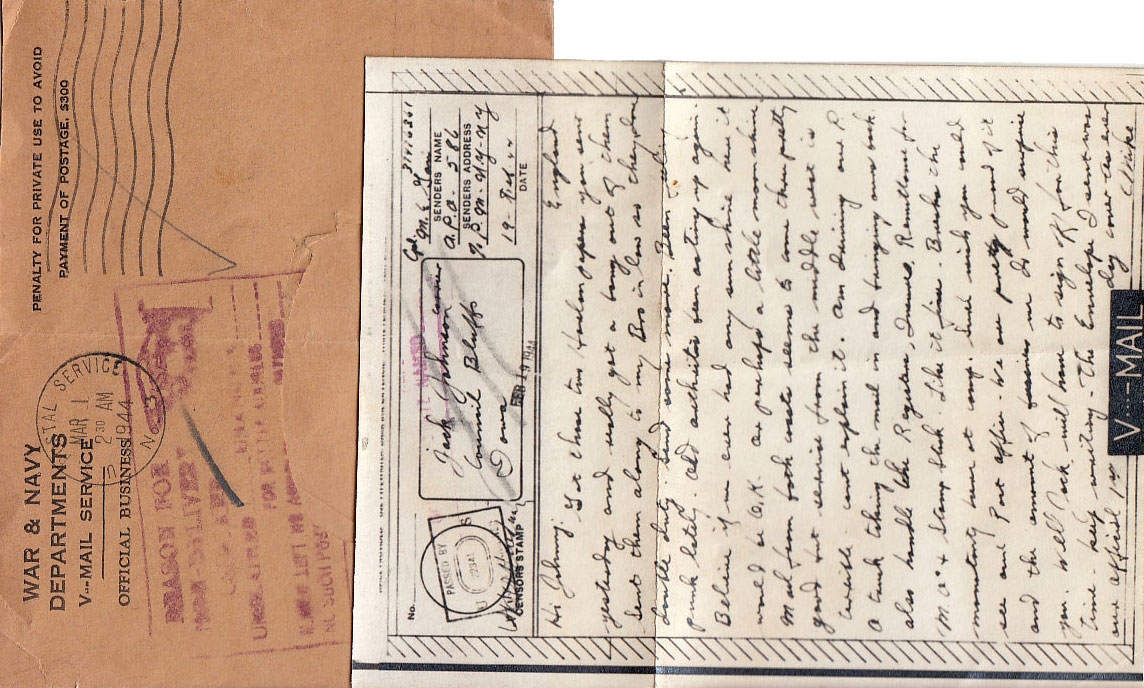 WAR & NAVY
DEPARTMENTS
V···-MAIL SERVICE
OFFICIAL BUSINESS
PENALTY FOR PRIVATE USE TO AVOID
PAYMENT OF POSTAGE, $300
POSTAL SERVICE
MAR 1
2 30 AM
1944
REASON FOR
NON-DELIVERY
UNCLAIMED
FOR BETTER ADDRESS
No.
PASSED BY
CENSOR'S STAMP
Jack Johnson
Council Bluffs
Iowa
FEB 29 1944
Cpl M. E.
SENDERS NAME
A.P.O - 586
SENDERS ADDRESS
% P.M. N.Y. N.Y.
19 - Feb 44
DATE
England
Hi Johnny: Got these two papers you sent
yesterday and really got a bang out of them
Sent them along to my Bro in law so they do
double duty. Send some more. Been
punk lately. Old arthritis been acting up again.
Believe if we ever had any sunshine here it
would be O.K. or perhaps a little moonshine
Mail from both coasts seems to come thru pretty
good but service from the middle west is
terrible. Can't explain it. Am driving one R
a truck taking the mail in and bringing ours back
also handle the Registers, Insured, Remittances for
M.O's & Stamp Stock. Like it fine. Beats the
monotony here at camp. Sure wish you could
see our Post office - We are pretty proud of it
and the amount of business we do would surprise
you. Well Jack will have to sign off for this
time - keep writing - The Envelope I sent was
one official
as ever
Mike
V···-MAIL